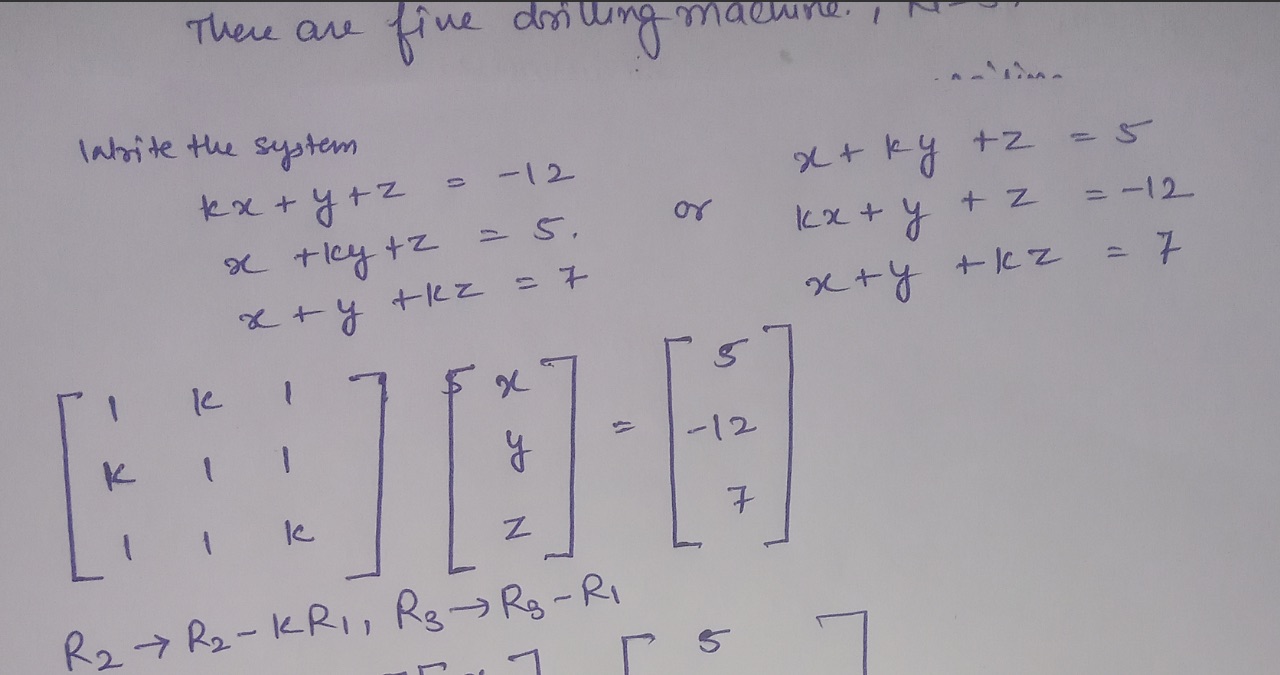 There are five drilling machine.,
Write the system
kx + y + z = -12
x + ky + z = 5.
x + y + kz = 7
or
x + ky + z = 5
kx + y + z = -12
x + y + kz = 7
[ 1 k 1 ] [ x ] = [ 5 ]
[ k 1 1 ] [ y ] [ -12 ]
[ 1 1 k ] [ z ] [ 7 ]
R2 → R2 - kR1, R3 → R3 - R1
5